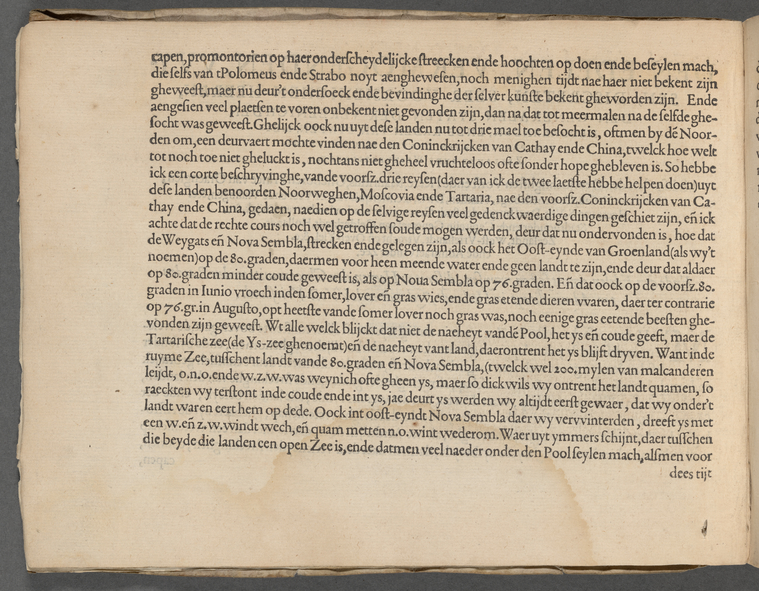 capen, promontorien op haer onderscheydelijcke streecken ende hoochten op doen ende beseylen mach,
die selfs van tPolomeus ende Strabo noyt aenghewesen, noch menighen tijdt nae haer niet bekent zijn
gheweest, maer nu deur't ondersoeck ende bevindinghe der selver kunste bekent gheworden zijn. Ende
aengesien veel plaetsen te voren onbekent niet gevonden zijn, dan na dat tot meermalen na de selfde ghe-
socht was geweest. Ghelijck oock nu uyt dese landen nu tot drie mael toe besocht is, oftmen by dē Noor-
den om, een deurvaert mochte vinden nae den Coninckrijcken van Cathay ende China, twelck hoe welt
tot noch toe niet gheluckt is, nochtans niet gheheel vruchteloos ofte sonder hope ghebleven is. So hebbe
ick een corte beschryvinghe, vande voorsz. drie reysen (daer van ick de twee laetste hebbe helpen doen) uyt
dese landen benoorden Noorweghen, Moscovia ende Tartaria, nae den voorsz. Coninckrijcken van Ca-
thay ende China, gedaen, naedien op de selvige reysen veel gedenckwaerdige dingen geschiet zijn, eñ ick
achte dat de rechte cours noch wel getroffen soude mogen werden, deur dat nu ondervonden is, hoe dat
de Weygats eñ Nova Sembla, strecken ende gelegen zijn, als oock het Oost-eynde van Groenland (als wy't
noemen) op de 80. graden, daermen voor heen meende water ende geen landt te zijn, ende deur dat aldaer
op 80. graden minder coude geweest is, als op Nova Sembla op 76. graden. Eñ dat oock op de voorsz. 80.
graden in Iunio vroech inden somer, lover eñ gras wies, ende gras etende dieren waren, daer ter contrarie
op 76. gr. in Augusto, opt heetste vande somer lover noch gras was, noch eenige gras eetende beesten ghe-
vonden zijn geweest. Wt alle welck blijckt dat niet de naeheyt vandē Pool, het ys eñ coude geeft, maer de
Tartarische zee (de Ys-zee ghenoemt) eñ de naeheyt vant land, daerontrent het ys blijft dryven. Want inde
ruyme Zee, tusschent landt vande 80. graden eñ Nova Sembla, (twelck wel 200. mylen van malcanderen
leijdt, o. n. o. ende w. z. w. was weynich ofte gheen ys, maer so dickwils wy ontrent het landt quamen, so
raeckten wy terstont inde coude ende int ys, jae deurt ys werden wy altijdt eerst gewaer, dat wy onder't
landt waren eert hem op dede. Oock int oost-eyndt Nova Sembla daer wy vervvinterden, dreeft ys met
een w. eñ z. w. windt wech, eñ quam metten n. o. wint wederom. Waer uyt ymmers schijnt, daer tusschen
die beyde die landen een open Zee is, ende datmen veel naeder onder den Pool seylen mach, alsmen voor
dees tijt